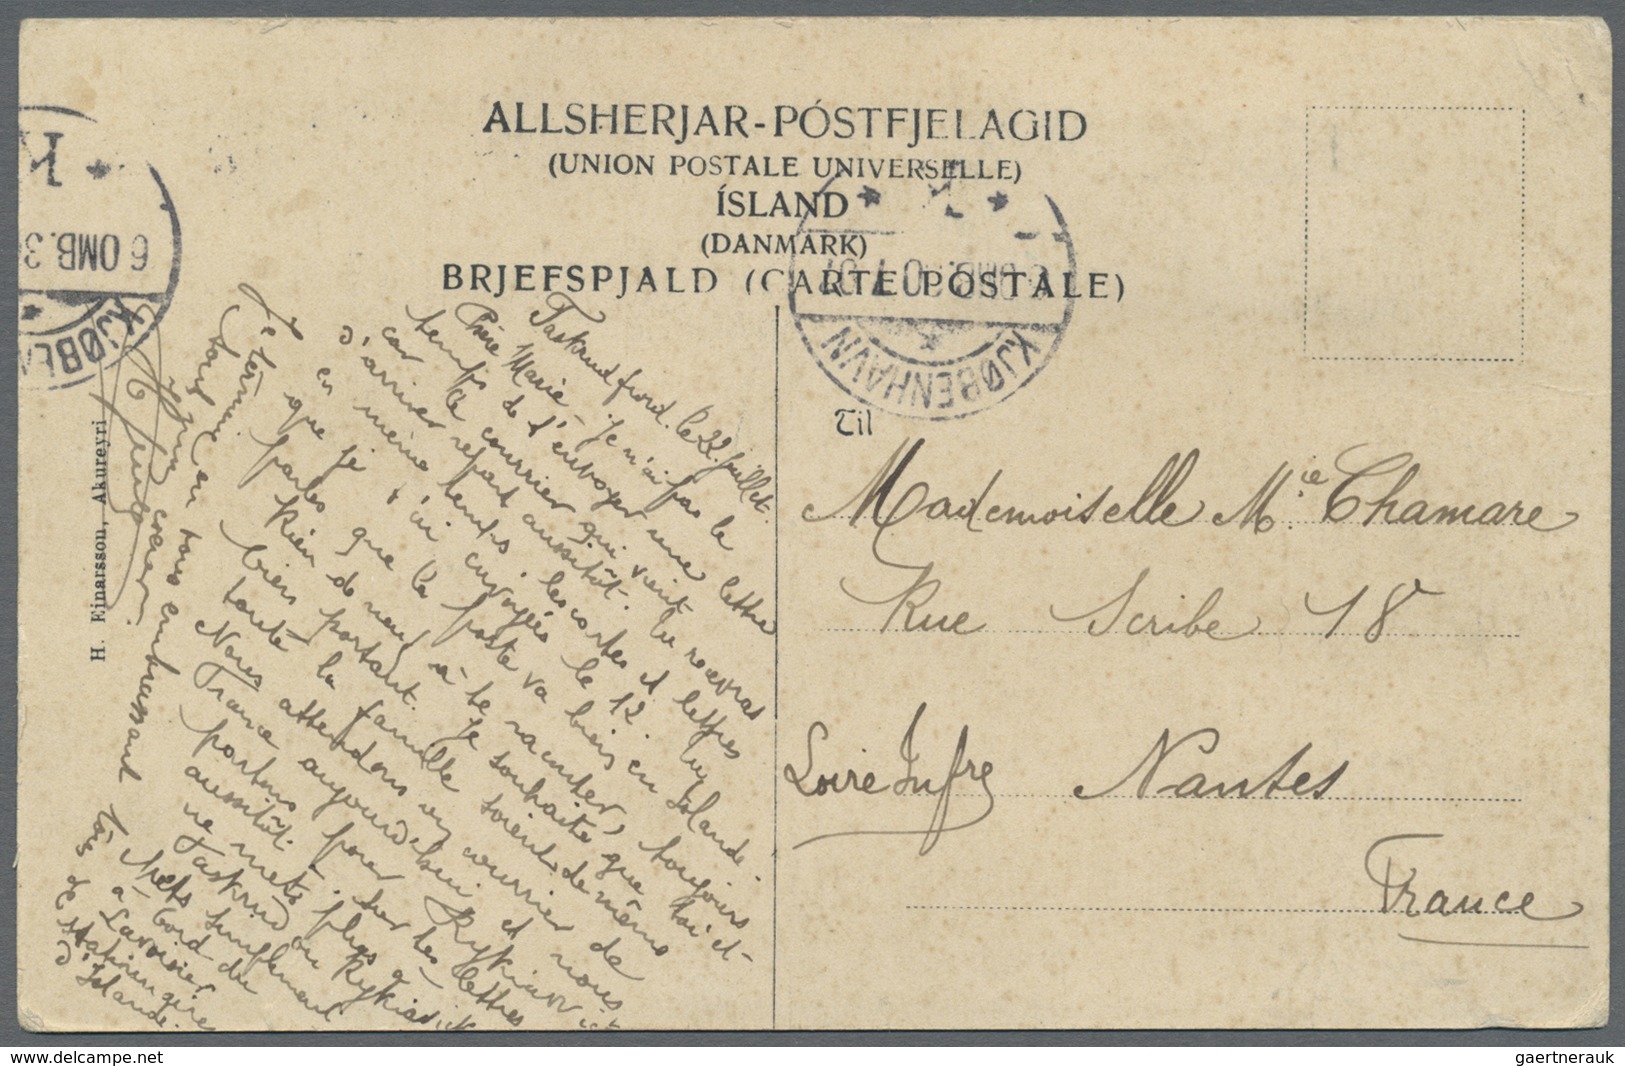 ALLSHERJAR-PÓSTFJELAGID
(UNION POSTALE UNIVERSELLE)
ÍSLAND
(DANMARK)
BRJEFSPJALD (CARTE POSTALE)
K
6 OMB. 3
KJØBENHAVN
Til
Mademoiselle Mie Chamare
Rue Scribe 18
Loire Infre Nantes
France
H. Einarsson, Akureyri
Faskrudfjord. le 22 juillet.
Chère Marie - Je n'ai pas le
temps de t'envoyer une lettre
car le courrier qui vient
d'arriver repart aussitôt. tu recevras
en même temps les cartes et lettres
que je t'ai envoyées le 12. tu
parles que la poste va bien en Islande.
Rien de neuf à te raconter, toujours
bien portant. Je souhaite que toi et
toute la famille soient de même
Nous attendons un courrier de
France aujourd'hui et nous
partons pour Rykiavick
aussitôt.
ne mets plus
sur les lettres
Faskrud ou Rykiavick
Mets simplement
à bord du
Lavoisier
Stationnaire
d'Islande.
Je termine
en vous embrassant tous
gaertnerauk